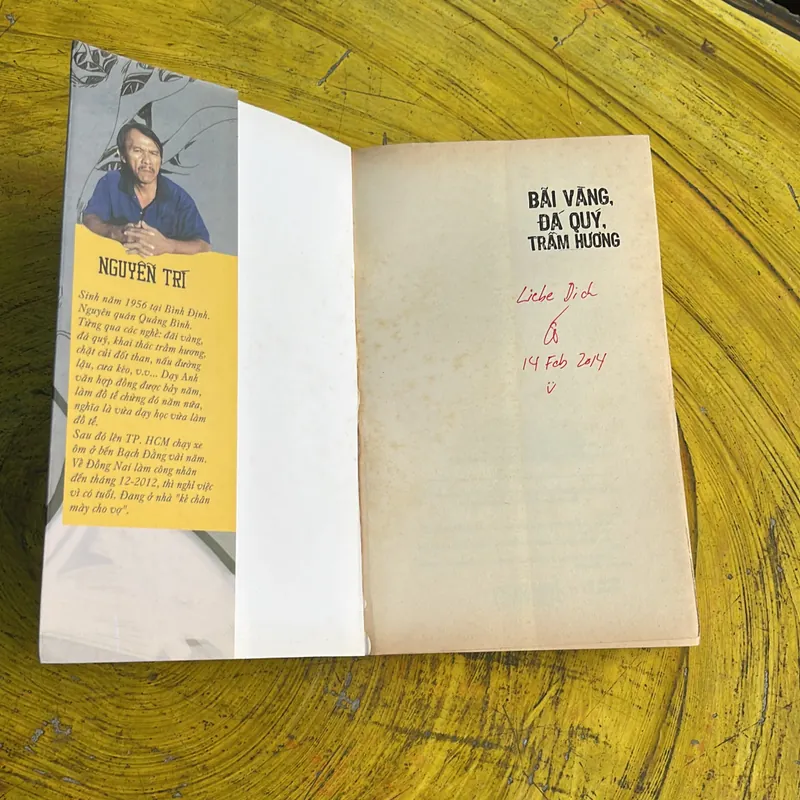 NGUYỄN TRÍ
Sinh năm 1956 tại Bình Định.
Nguyên quán Quảng Bình.
Từng qua các nghề: đãi vàng,
đá quý, khai thác trầm hương,
chặt củi đốt than, nấu đường
lậu, cưa kéo, v.v... Dạy Anh
văn hợp đồng được bảy năm,
làm đồ tể chừng đó năm nữa,
nghĩa là vừa dạy học vừa làm
đồ tể.
Sau đó lên TP. HCM chạy xe
ôm ở bến Bạch Đằng vài năm.
Về Đồng Nai làm công nhân
đến tháng 12-2012, thì nghỉ việc
vì có tuổi. Đang ở nhà "kẻ chân
mày cho vợ".
BÃI VÀNG,
ĐÁ QUÝ,
TRẦM HƯƠNG
Liebe Dich
14 Feb 2014